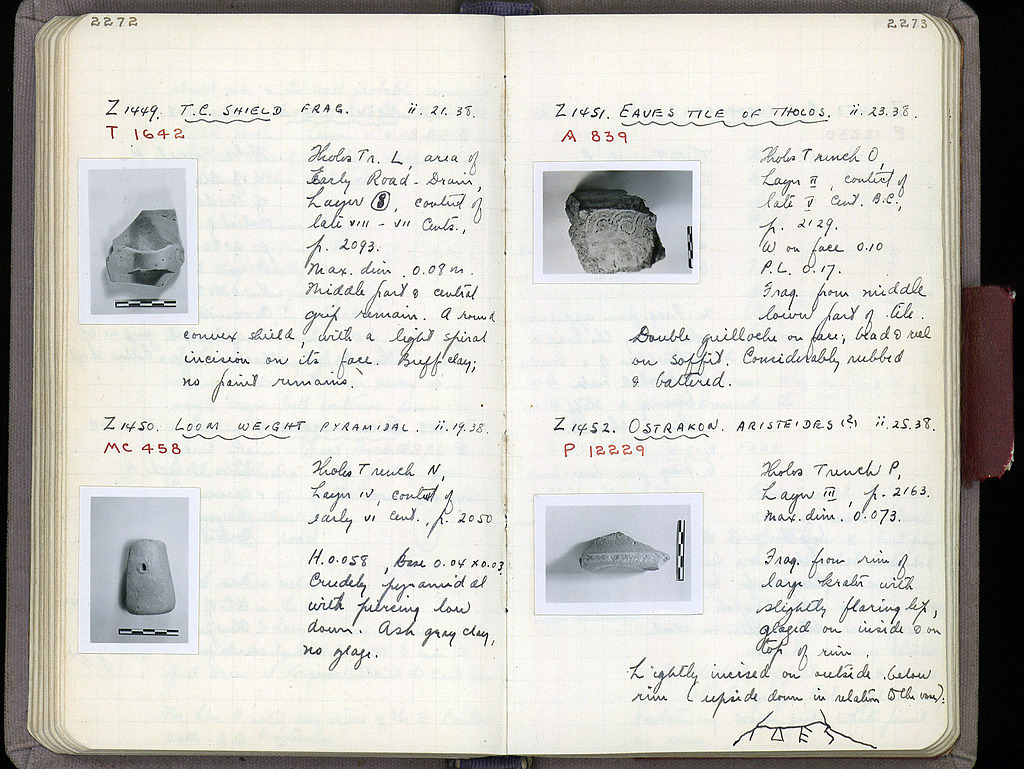 2272
Z 1449. T.C. SHIELD FRAG. ii.21.38.
T 1642
Tholos Tr. L, area of
Early Road-Drain,
Layer 8, context of
late VIII - VII Cents.,
p. 2093.
Max. dim. 0.08 m.
Middle part & central
grip remain. A round
convex shield, with a light spiral
incision on its face. Buff clay;
no paint remains.
Z 1450. LOOM WEIGHT PYRAMIDAL. ii.19.38.
MC 458
Tholos Trench N,
Layer IV, context of
early VI Cent., p. 2050
H. 0.058, Base 0.04 x 0.03
Crudely pyramidal
with piercing low
down. Ash gray clay,
no glaze.
2273
Z 1451. EAVES TILE OF THOLOS. ii.23.38.
A 839
Tholos Trench O,
Layer II, context of
late V Cent. B.C.,
p. 2129.
W on face 0.10
P.L. 0.17.
Frag. from middle
lower part of tile.
Double guilloche on face, bead & reel
on soffit. Considerably rubbed
& battered.
Z 1452. OSTRAKON. ARISTEIDES (?) ii.25.38
P 12229
Tholos Trench P,
Layer III, p. 2163.
Max. dim. 0.073.
Frag. from rim of
large krater with
slightly flaring lip,
glazed on inside & on
top of rim.
Lightly incised on outside below
rim (upside down in relation to the vase):